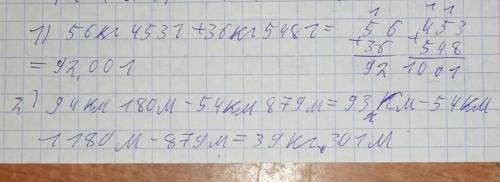 1) 56кг 453г + 36кг 548г =
= 92,001
1 11
56 453
+36 +548
92 1001
2) 94км 180м - 54км 879м = 93км - 54км
1180м - 879м = 39кг.301м